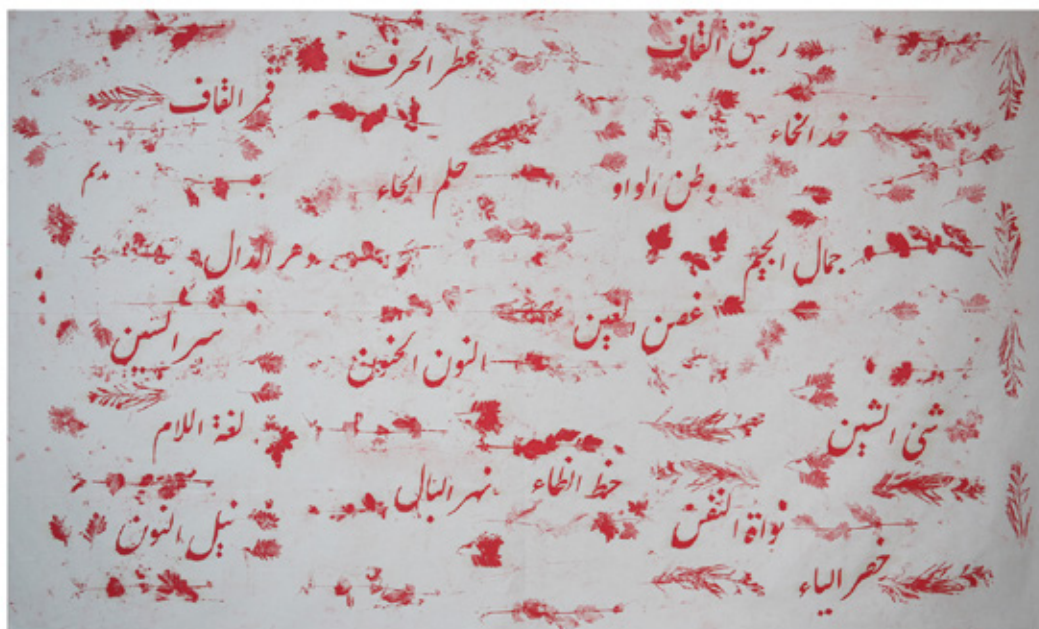 رحيق القاف
عطر الحرف
قمر القاف
خد الخاء
وطن الواو
حلم الحاء
ميم
جمال الجيم
دهر الدال
غصن الغين
سر السين
النون الحنون
شئ الشين
لغة اللام
حظ الظاء
نهر البال
نواة النفس
نيل النون
خضر الياء